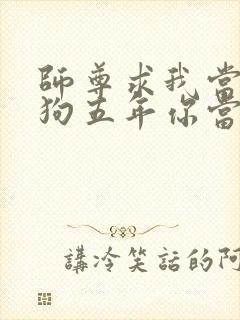 師尊求我當
狗五年你當
講冷笑話的阿